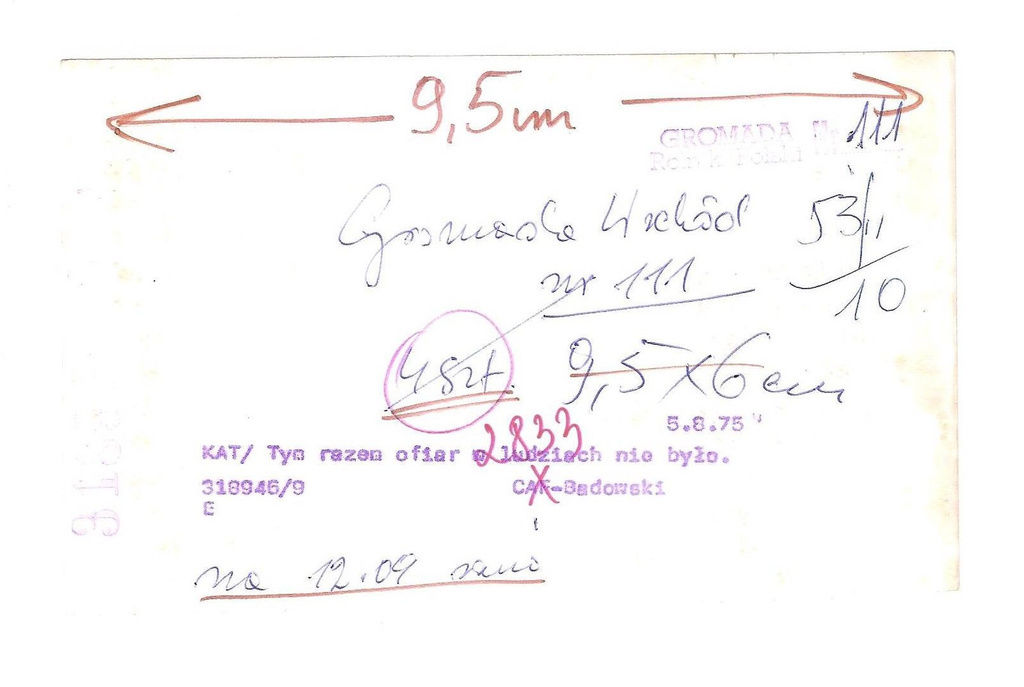 9,5 cm
GROMADA Nr 111
Rolnik Polski
Gromada Wschód 53/11
nr 111 10
4 szt. 9,5 x 6 cm
5.8.75
2833
KAT/ Tym razem ofiar w ludziach nie było.
318946/9 CAF-Dadowski
E
na 12.09 rano